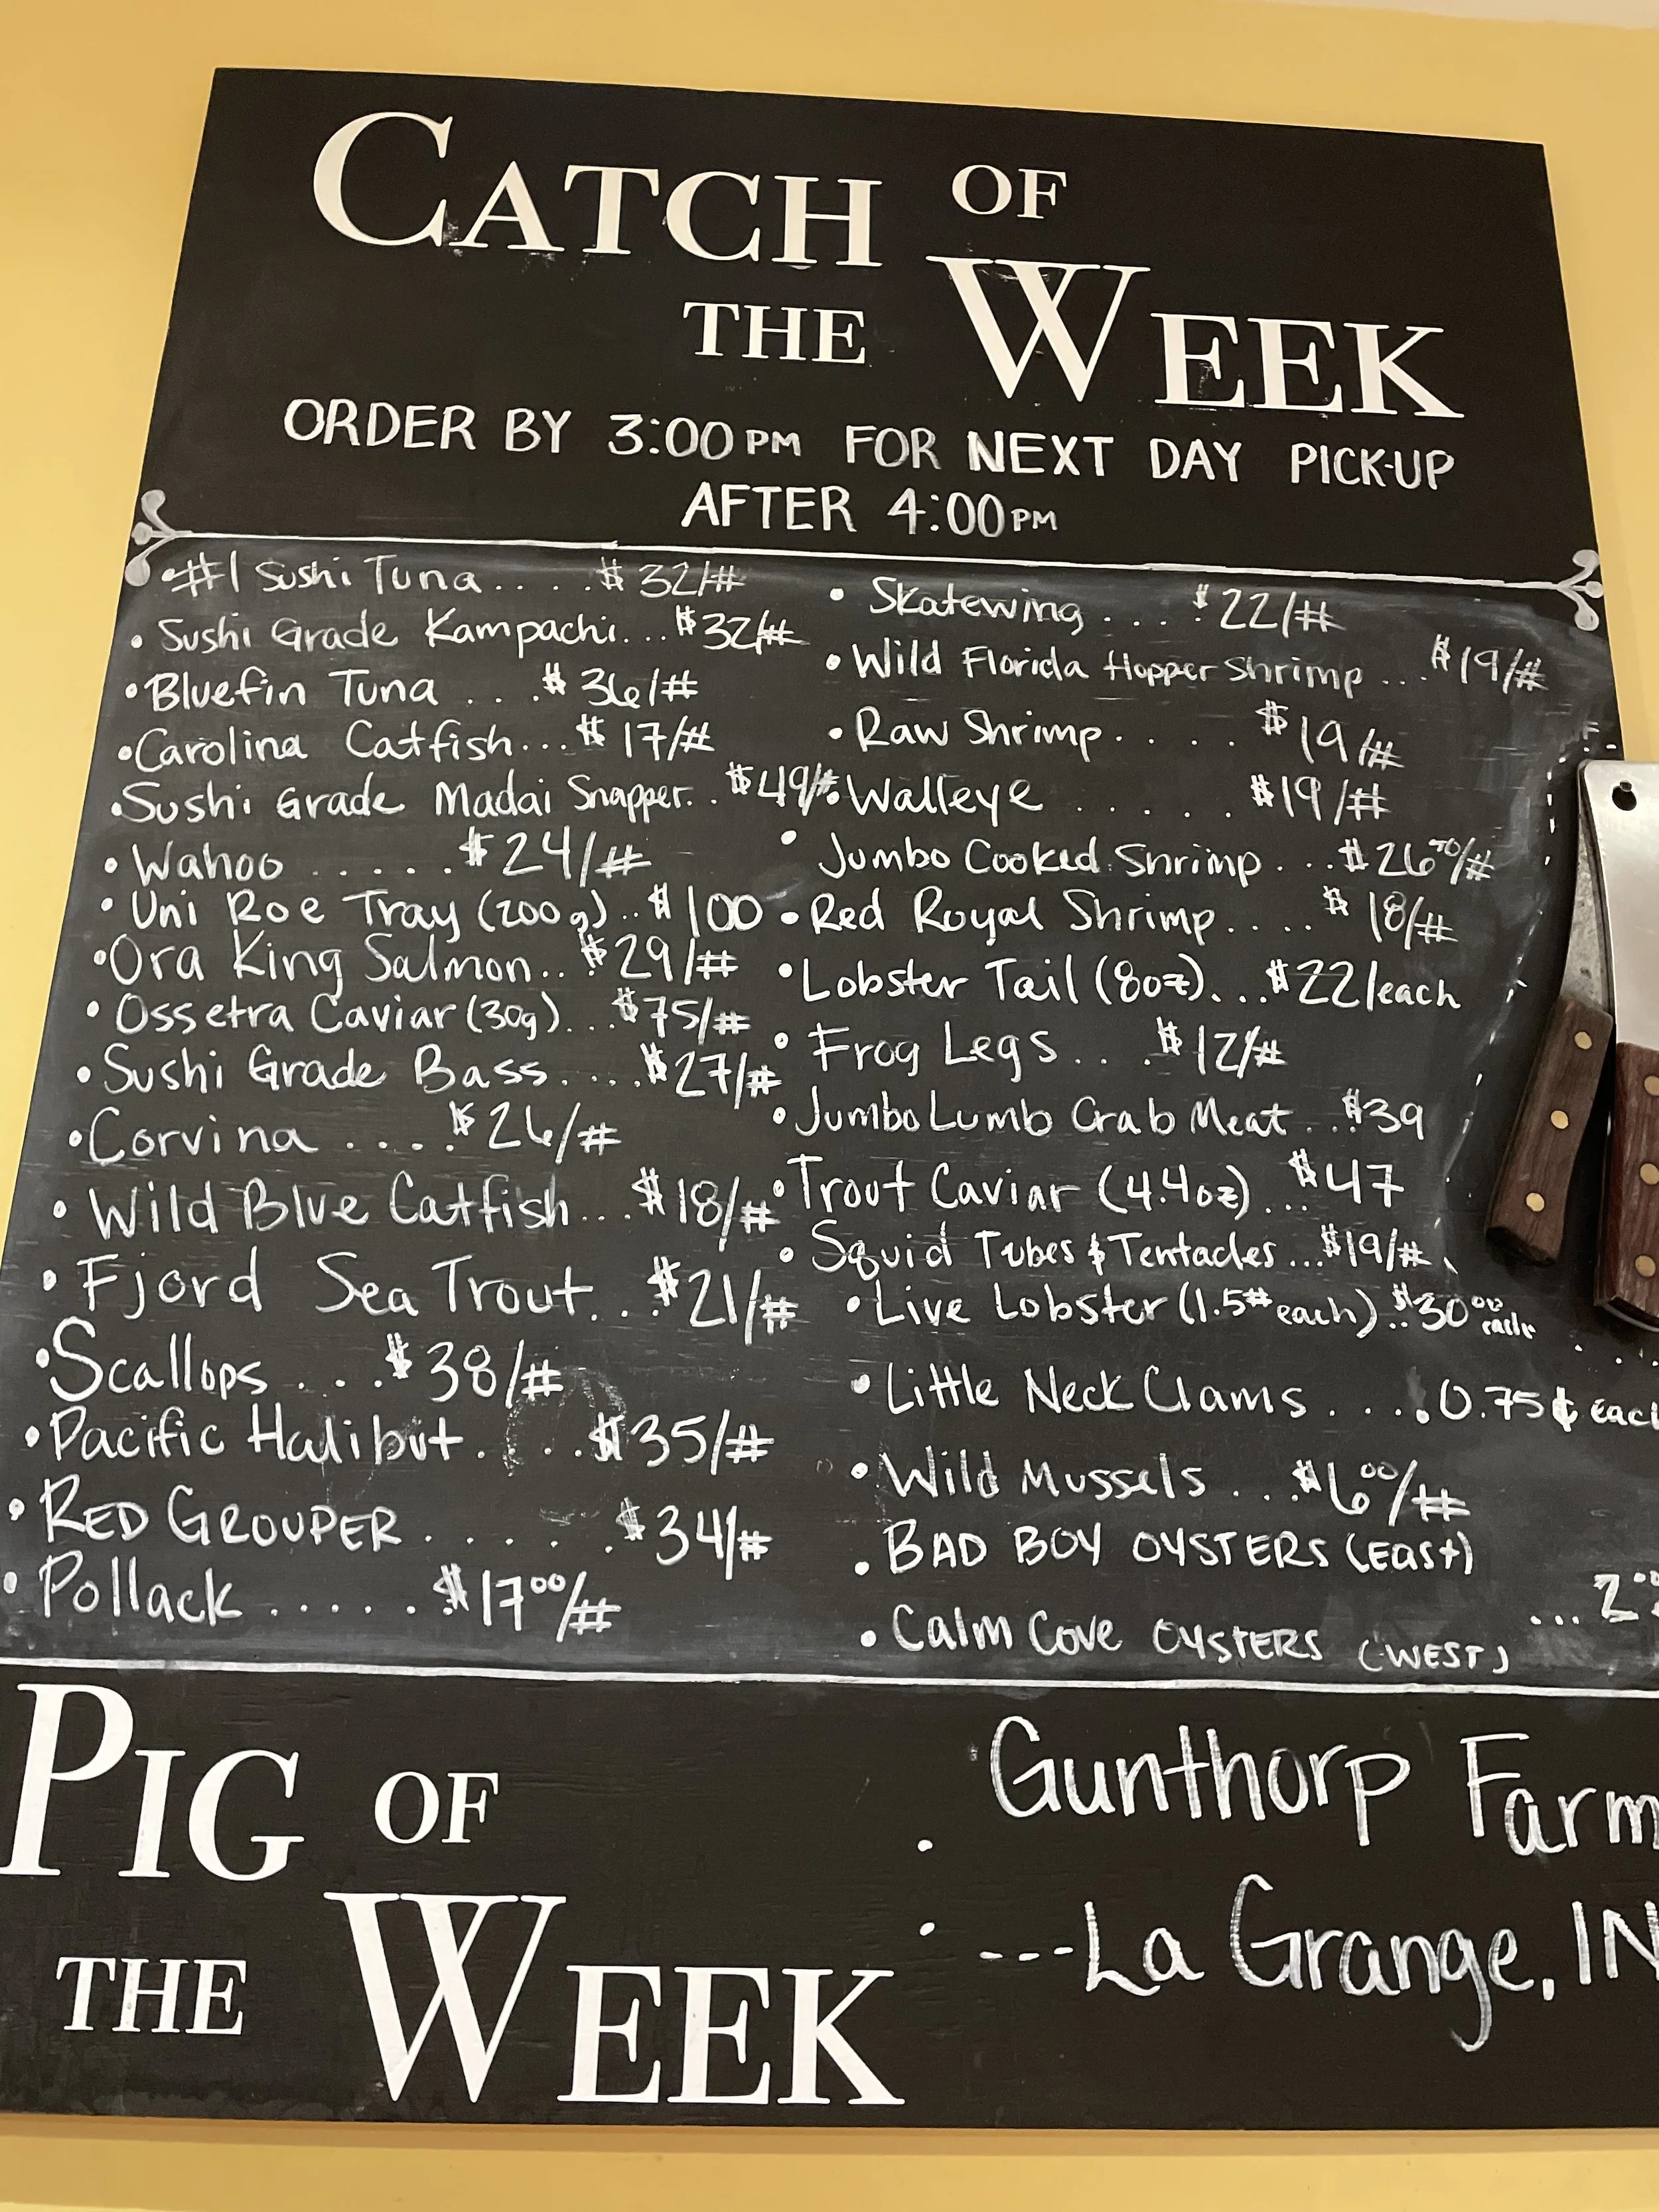 CATCH OF
THE WEEK
ORDER BY 3:00PM FOR NEXT DAY PICK-UP
AFTER 4:00PM
• #1 Sushi Tuna.... $32/#
• Sushi Grade Kampachi... $32/#
• Bluefin Tuna ... $36/#
• Carolina Catfish... $17/#
• Sushi Grade Madai Snapper.. $49/#
• Wahoo ..... $24/#
• Uni Roe Tray (200g).. $100
• Ora King Salmon.. $29/#
• Ossetra Caviar (30g)... $75/#
• Sushi Grade Bass.... $27/#
• Corvina .... $26/#
• Wild Blue Catfish... $18/#
• Fjord Sea Trout... $21/#
• Scallops ... $38/#
• Pacific Halibut.... $35/#
• RED GROUPER...... $34/#
• Pollack ..... $17.00/#
• Skatewing .... $22/#
• Wild Florida Hopper Shrimp ... $19/#
• Raw Shrimp..... $19/#
• Walleye ..... $19/#
• Jumbo Cooked Shrimp... $26/#
• Red Royal Shrimp.... $18/#
• Lobster Tail (8oz)... $22/each
• Frog Legs... $12/#
• Jumbo Lumb Crab Meat.. $39
• Trout Caviar (4.4oz)... $47
• Squid Tubes & Tentacles... $19/#
• Live Lobster (1.5# each).. $30.00 each
• Little Neck Clams .... 0.75¢
• Wild Mussels ... $6.00/#
• BAD BOY OYSTERS (East)
• Calm Cove OYSTERS (WEST)
PIG OF
THE WEEK
Gunthorp Farm
---La Grange, IN